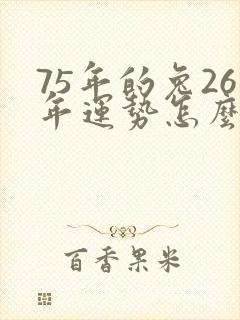 75年的兔26
年運势怎麼
百香果米